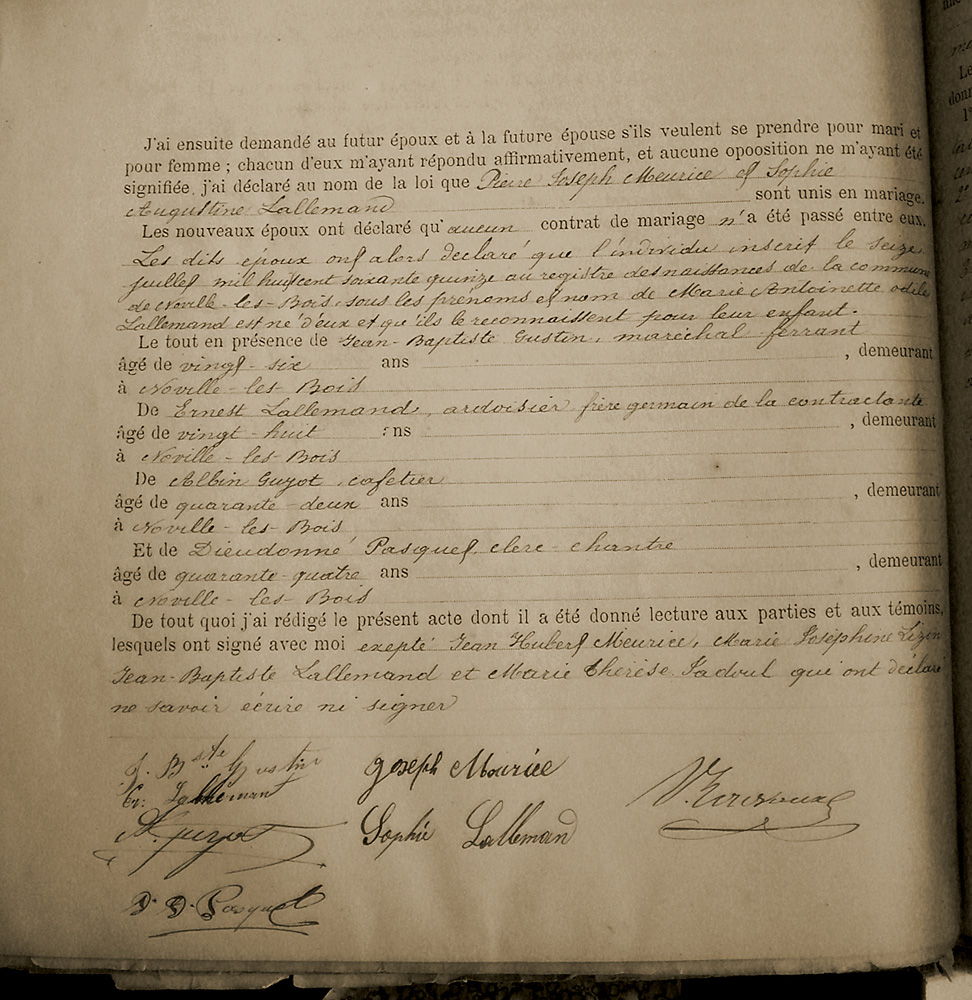 J'ai ensuite demandé au futur époux et à la future épouse s'ils veulent se prendre pour mari et
pour femme ; chacun d'eux m'ayant répondu affirmativement, et aucune opoosition ne m'ayant été
signifiée, j'ai déclaré au nom de la loi que Pierre Joseph Meurice et Sophie
Augustine Lallemand sont unis en mariage.
Les nouveaux époux ont déclaré qu'aucun contrat de mariage n'a été passé entre eux.
Les dits époux ont alors déclaré que l'individu inscrit le seize
juillet mil huit cent soixante quinze au registre des naissances de la commune
de Noville-les-Bois, sous les prénoms et nom de Marie Antoinette odile
Lallemand est né d'eux et qu'ils le reconnaissent pour leur enfant.
Le tout en présence de Jean-Baptiste Gustin, maréchal-ferrant
âgé de vingt-six ans , demeurant
à Noville-les-Bois
De Ernest Lallemand, ardoisier frère germain de la contractante
âgé de vingt-huit ans , demeurant
à Noville-les-Bois
De Albin Guyot, cafetier
âgé de quarante-deux ans , demeurant
à Noville-les-Bois
Et de Dieudonné Pasquet, clerc-chantre
âgé de quarante-quatre ans , demeurant
à Noville-les-Bois
De tout quoi j'ai rédigé le présent acte dont il a été donné lecture aux parties et aux témoins,
lesquels ont signé avec moi exepté Jean Hubert Meurice, Marie Joséphine Lizin
Jean-Baptiste Lallemand et Marie Thérèse Jadoul qui ont déclaré
ne savoir écrire ni signer
J. Bste Gustin
Joseph Meurice
Er. Lallemant
A. Guyot
Sophie Lallemand
D. D. Pasquet